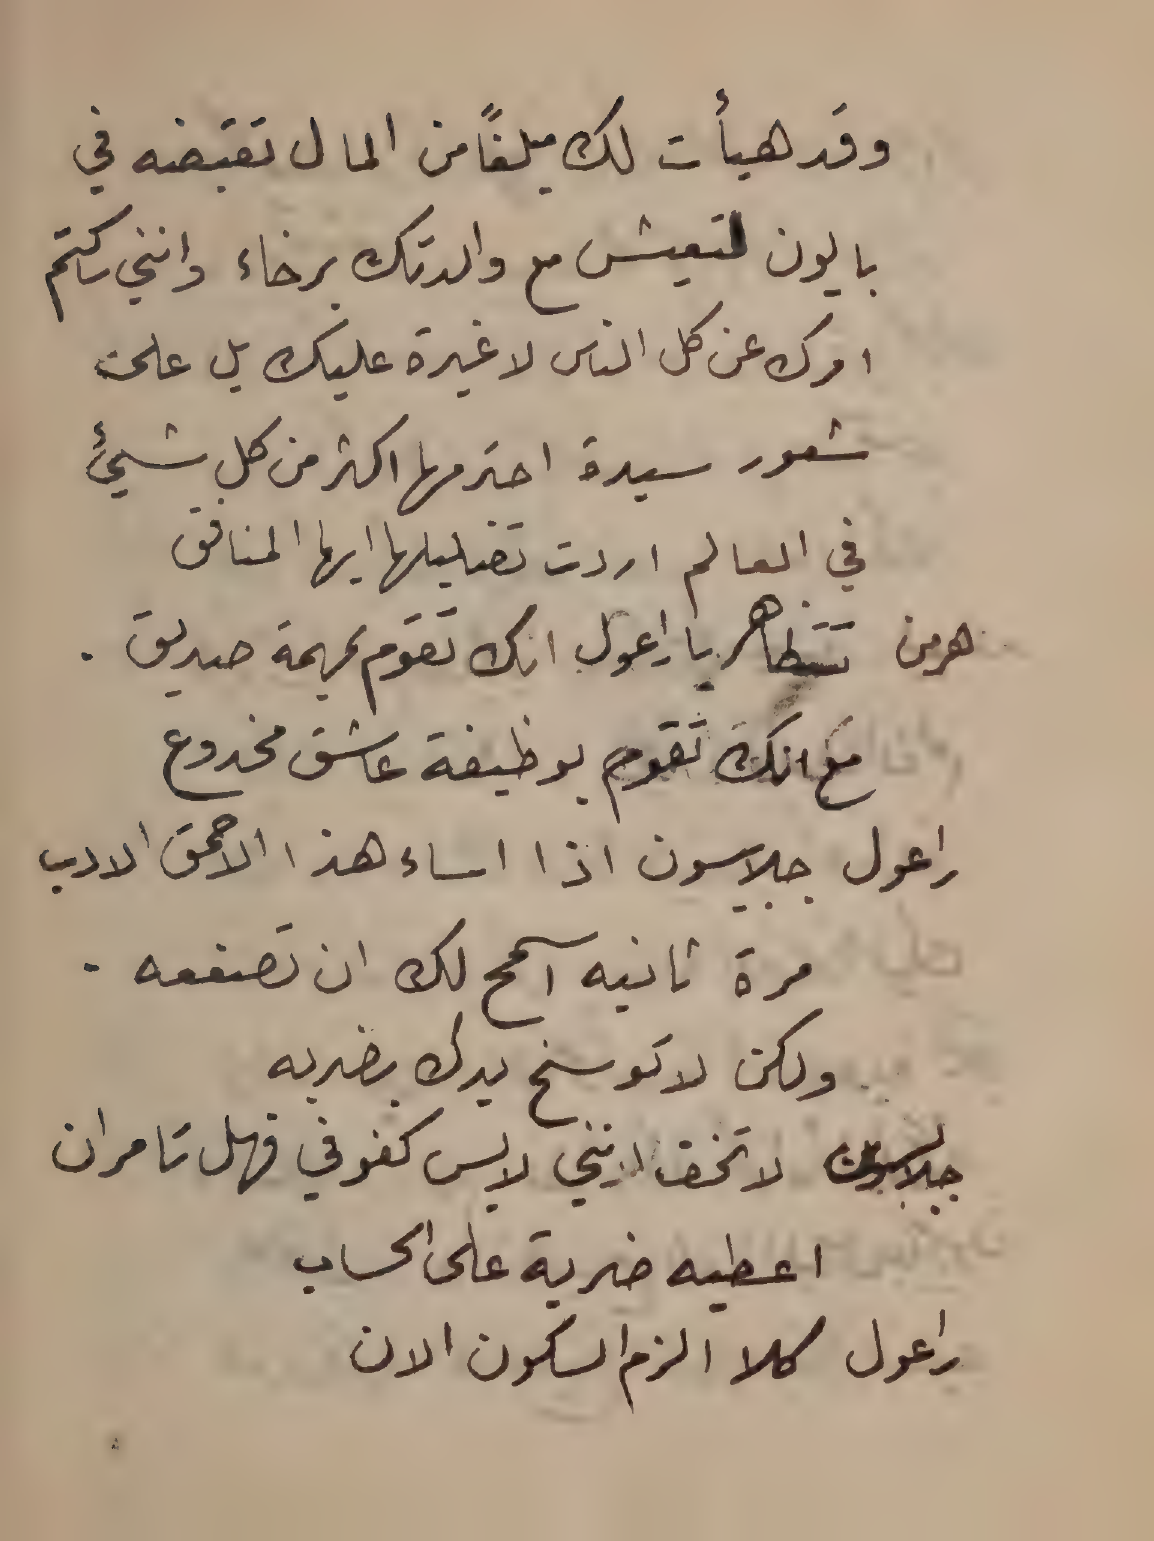 وقد هيأت لك مبلغًا من المال تقبضه في
بايون لتعيش مع والدتك برخاء وانني ساكتم
امرك عن كل الناس لا غيرة عليك بل على
شعور سيدة احترمها اكثر من كل شيئ
في العالم اردت تضليلها ايها المنافق
هرمن تتظاهر يا راعول انك تقوم بمهمة صديق .
مع انك تقوم بوظيفة عاشق مخدوع
راعول جلاسون اذا اساء هذا الاحمق الادب
مرة ثانيه اسمح لك ان تصفعه .
ولكن لا توسخ يدك بضربه
جلاسون لا تخف لانني لابس كفوفي فهل تامر ان
اعطيه ضربة على الحساب
راعول كلا الزم السكون الان